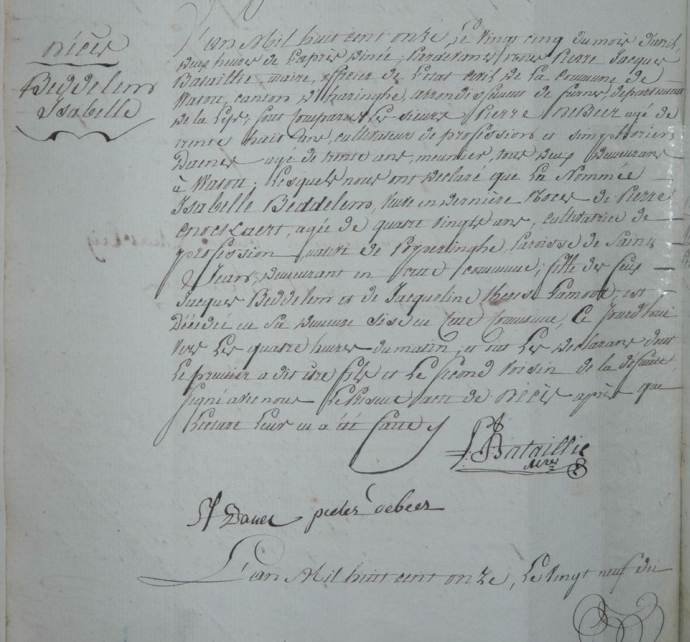 Décès
Beddelem
Isabelle
L'an Mil huit cent onze, Le vingt cinq du mois d'avril,
Deux heures de L'après Dinée, Pardevant nous Pierre Jacques
Bataillie, maire, officier de L'état civil de La commune de
Watou, canton d'haringhe, arrondissement de furnes, département
de La Lys, sont comparus Les sieurs Pierre DeBeer agé de
trente huit ans, cultivateur de profession, et simphorien
Daene agé de trente ans, meunier, tous deux demeurans
à Watou; Lesquels nous ont Déclaré que La Nommée
Isabelle Beddelem, en Dernière Noces de Pierre
agée de quatre vingts ans, cultivatrice de
profession native de Poperinghe, Paroisse de Saint
Jean, demeurant en cette commune; fille des feus
Jacques Beddelem et de Jacqueline therese Lamoot, est
Décédée en sa Demeure sise en Cette Commune, Ce Jourd'hui
vers Les quatre heures du matin, et ont Les Déclarans dont
Le premier a dit être fils et Le second voisin de la défunte
signé avec nous Le Présent acte de Décès après que
Lecture Leur en a été faite
Bataillie
pieter debeer
L'an Mil huit cent onze, Le vingt neuf du